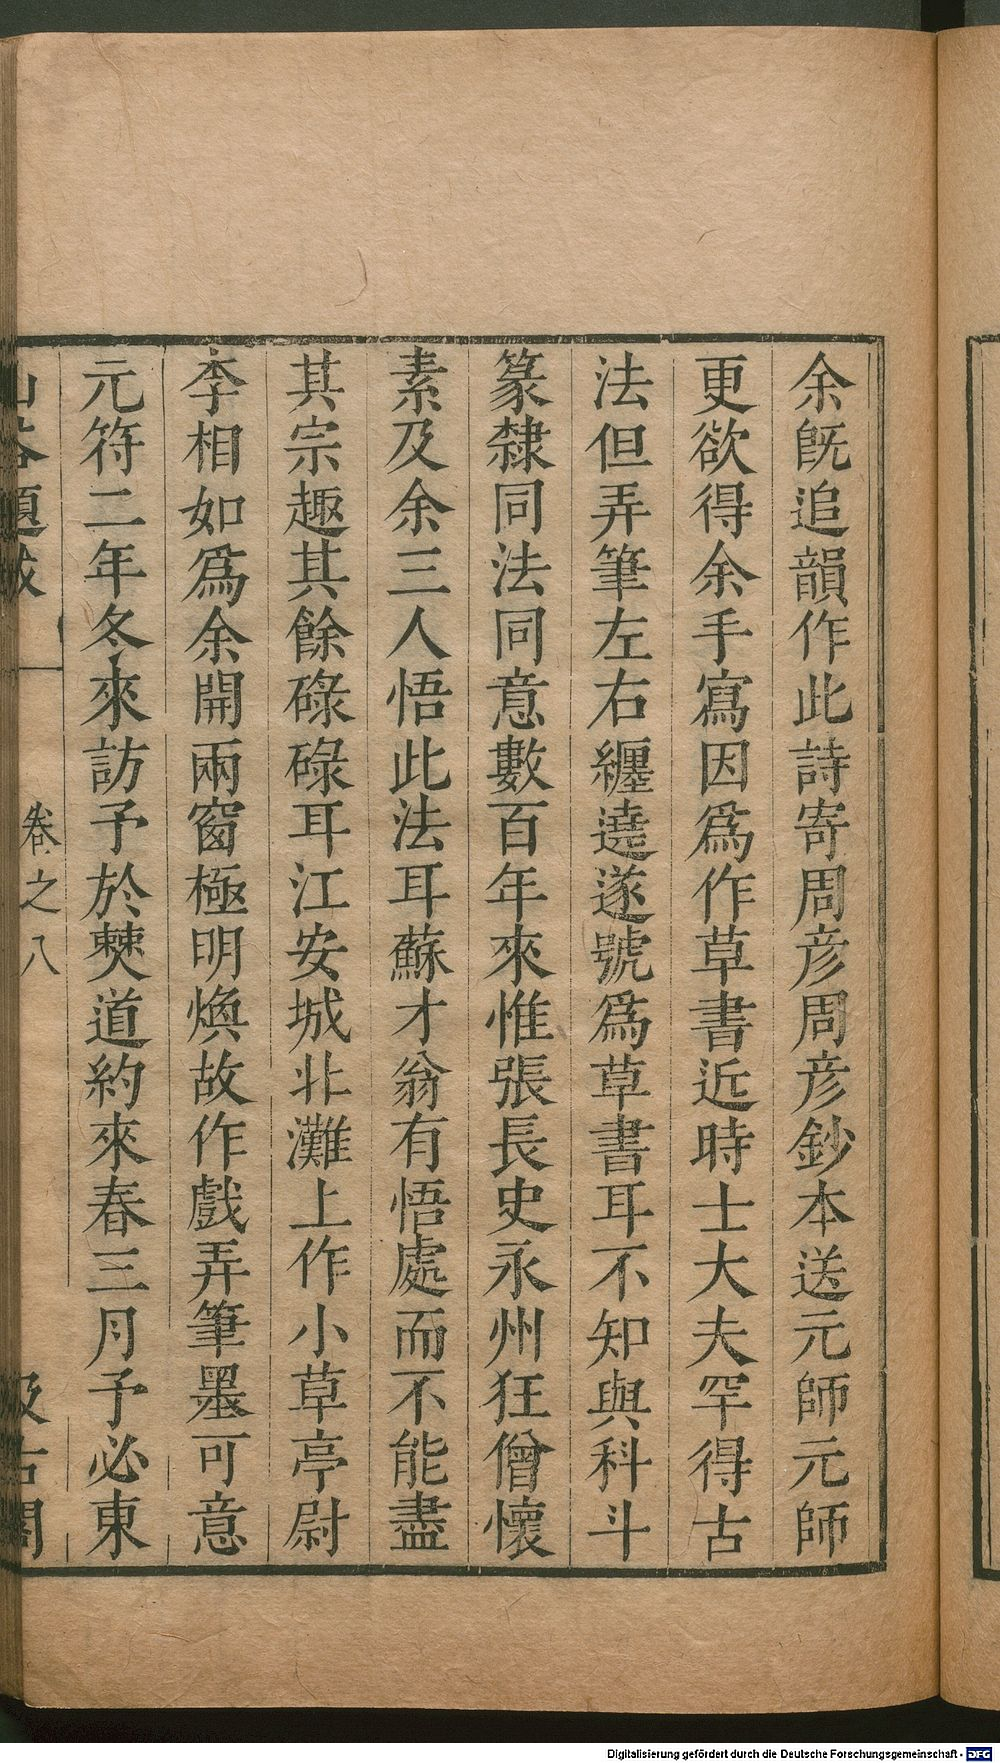 余旣追韻作此詩寄周彦周彦鈔本送元師元師
更欲得余手寫因爲作草書近時士大夫罕得古
法但弄筆左右纒遶遂號爲草書耳不知與科斗
篆隸同法同意數百年來惟張長史永州狂僧懷
素及余三人悟此法耳蘇才翁有悟處而不能盡
其宗趣其餘碌碌耳江安城北灘上作小草亭尉
李相如爲余開兩窗極明煥故作戲弄筆墨可意
元符二年冬來訪予於僰道約來春三月予必東
山谷題跋 卷之八 汲古閣
Digitalisierung gefördert durch die Deutsche Forschungsgemeinschaft - DFG